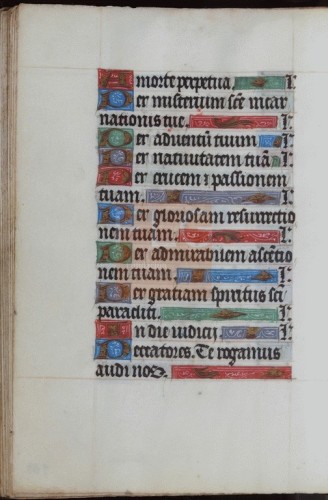 A morte perpetua. l'.
Per misterium sce incar
nationis tue. l'.
Per adventu tuum l'.
Per nativitatem tuā l'.
Per crucem ⁊ passionem
tuam. l'.
Per gloriosam resurrectio
nem tuam. l'.
Per admirabilem ascētio
nem tuam. l'.
Per gratiam spiritus sci
paracliti. l'.
In die iudicij. l'.
Peccatores. Te rogamus
audi nos